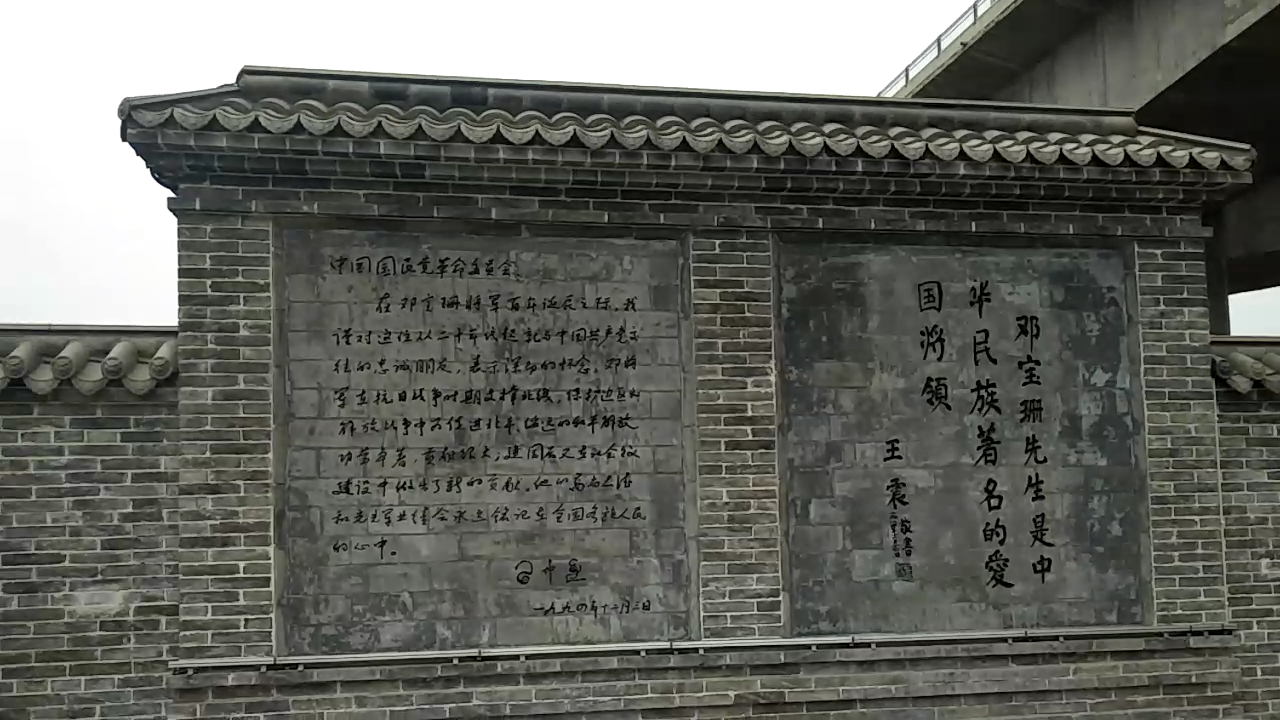 中国国民党革命委员会：
在邓宝珊将军百年诞辰之际，我
谨对这位从二十年代起就与中国共产党交
往的忠诚朋友，表示深切的怀念。邓将
军在抗日战争时期支撑北线，保护边区，
解放战争中为促进北平、绥远的和平解放
功劳卓著，贡献很大；建国后又在社会主义
建设中做出了新的贡献。他的高尚品德
和光辉业绩会永远铭记在全国各族人民
的心中。
习仲勋
一九九四年十二月二日
邓宝珊先生是中
华民族著名的愛
国将領
王震
敬書